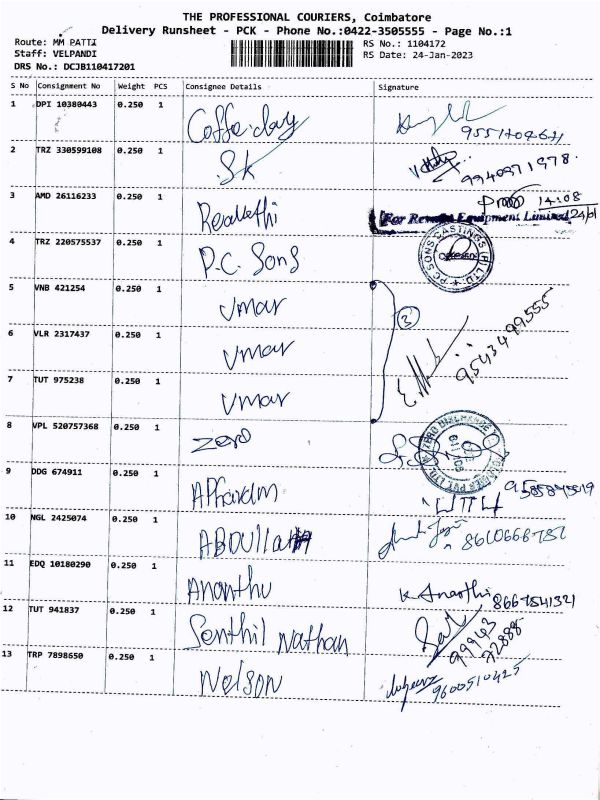 THE PROFESSIONAL COURIERS, Coimbatore
Delivery Runsheet - PCK - Phone No.:0422-3505555 - Page No.:1
Route: MM PATTI RS No.: 1104172
Staff: VELPANDI RS Date: 24-Jan-2023
DRS No.: DCJB110417201
S No Consignment No Weight PCS Consignee Details Signature
1 DPI 10380443 0.250 1 Coffe day
2 TRZ 330599108 0.250 1 SK 9940971978.
3 AMD 26116233 0.250 1 14:08
For Equipment Limited 24/01
4 TRZ 220575537 0.250 1 P.C. Sons
PC SONS CASTINGS (P) LTD
5 VNB 421254 0.250 1 Umar
3
6 VLR 2317437 0.250 1 Umar 9543499555
7 TUT 975238 0.250 1 Umar
8 VPL 520757368 0.250 1 Zero
9 DDG 674911 0.250 1
10 NGL 2425074 0.250 1 ABDULLAH
11 EDQ 10180290 0.250 1 Ananthu K. Ananthi 8667541321
12 TUT 941837 0.250 1 Senthil Nathan 99943 72888
13 TRP 7898650 0.250 1 Nelson 9600510425